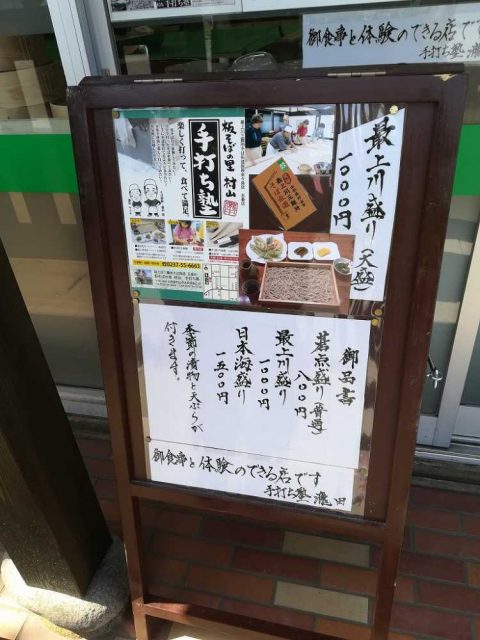 御食事と体験のできる店です
手打ち塾 滝田
最上川盛り 天盛
一〇〇〇円
板そばの里 村山
手打ち塾
楽しく打って、食べて満足。
0237-55-6663
御品書
碁点盛り(普通)
八〇〇円
最上川盛り
一〇〇〇円
日本海盛り
一五〇〇円
季節の漬物と天ぷらが
付きます。
御食事と体験のできる店です
手打ち塾 滝田